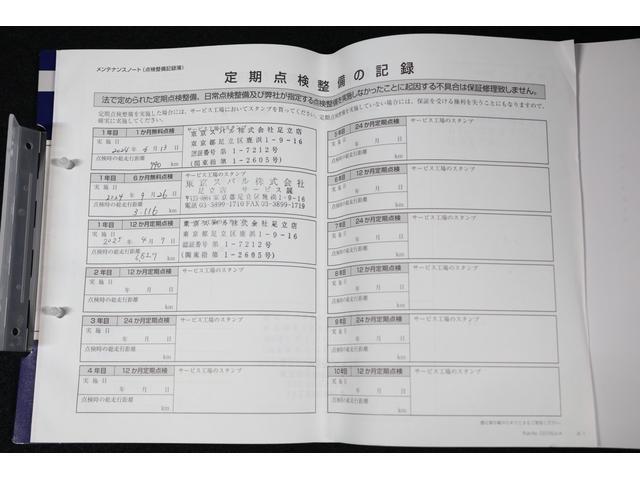 メンテナンスノート(点検整備記録簿)
定期点検整備の記録
法で定められた定期点検整備、日常点検整備及び弊社が指定する点検整備を実施しなかったことに起因する不具合は保証修理致しません。
定期点検整備を実施した場合には、サービス工場においてスタンプを買ってください。
実施していない場合には、保証を受ける権利を失うことにもなりますので、
確実に実施してください。
1年目 1か月無料点検
実施日
2024年4月13日
点検時の総走行距離
790 km
サービス工場のスタンプ
東京スバル株式会社足立店
東京都足立区鹿浜1-9-16
認証番号第1-7212号
(関東指第1-2605号)
1年目 6か月無料点検
実施日
2024年9月26日
点検時の総走行距離
3,116 km
サービス工場のスタンプ
東京スバル株式会社
足立店 サービス課
東京都足立区鹿浜1-9-16
TEL 03-3899-1710 FAX 03-3899-1719
1年目 12か月定期点検
実施日
2025年4月7日
点検時の総走行距離
6,627 km
東京スバル株式会社足立店
東京都足立区鹿浜1-9-16
認証番号第1-7212号
(関東指第1-2605号)
2年目 12か月定期点検
実施日
年 月 日
点検時の総走行距離
km
サービス工場のスタンプ
3年目 24か月定期点検
実施日
年 月 日
点検時の総走行距離
km
サービス工場のスタンプ
4年目 12か月定期点検
実施日
年 月 日
点検時の総走行距離
km
サービス工場のスタンプ
5年目 24か月定期点検
実施日
年 月 日
点検時の総走行距離
km
サービス工場のスタンプ
6年目 12か月定期点検
実施日
年 月 日
点検時の総走行距離
km
サービス工場のスタンプ
7年目 24か月定期点検
実施日
年 月 日
点検時の総走行距離
km
サービス工場のスタンプ
8年目 12か月定期点検
実施日
年 月 日
点検時の総走行距離
km
サービス工場のスタンプ
9年目 24か月定期点検
実施日
年 月 日
点検時の総走行距離
km
サービス工場のスタンプ
10年目 12か月定期点検
実施日
年 月 日
点検時の総走行距離
km
サービス工場のスタンプ